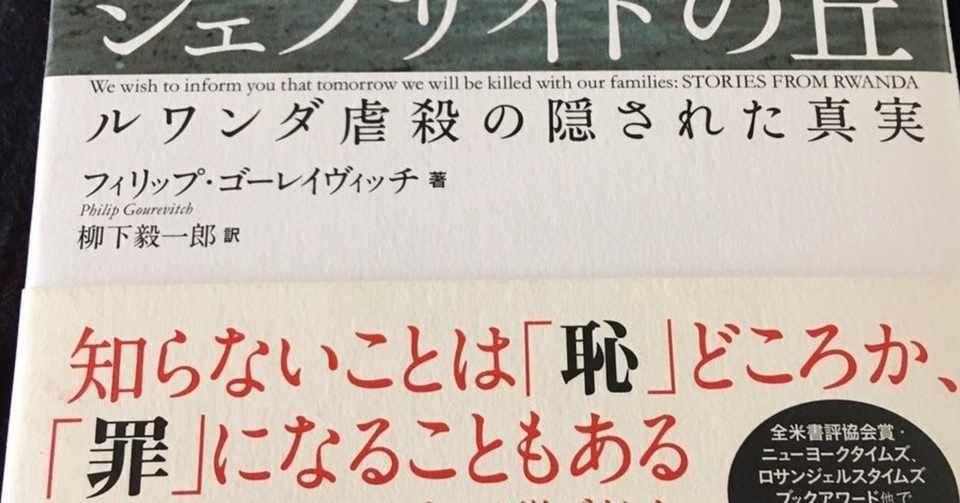 ジェノサイドの丘
We wish to inform you that tomorrow we will be killed with our families: STORIES FROM RWANDA
ルワンダ虐殺の隠された真実
フィリップ・ゴーレイヴィッチ 著
Philip Gourevitch
柳下毅一郎 訳
知らないことは「恥」どころか、
「罪」になることもある
全米書評協会賞・
ニューヨークタイムズ、
ロサンジェルスタイムズ
ブックアワード他で